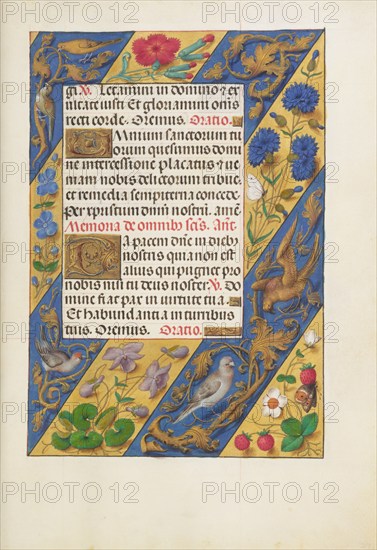 gi. V. Letamini in domino et ex
ultate iusti. Et gloriamini oms
recti corde. Oremus. Oratio.
Omnium sanctorum tu
orum quesumus domi
ne intercessione placatus et ue
niam nobis delictorum tribue.
et remedia sempiterna concede.
Per xpistum dnm nostrū. amē.
Memoria de omnibus scīs. Ant.
Da pacem dnē in dieb
nostris quia non est
alius qui pugnet pro
nobis nisi tu deus noster. V. Do
mine fiat pax in uirtute tua.
Et habundantia in turribus
tuis. Oremus. Oratio.
PHOTO 12